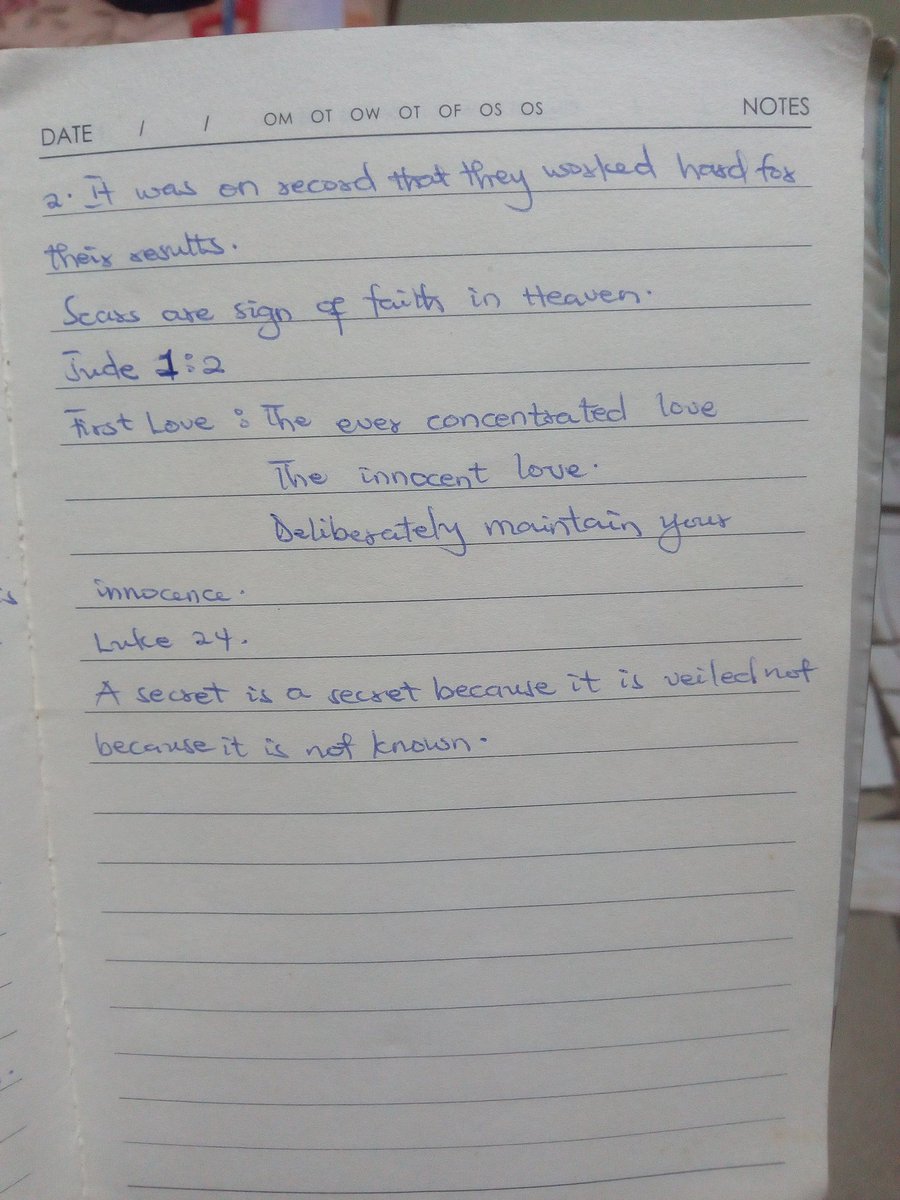 DATE / / OM OT OW OT OF OS OS NOTES
2. It was on record that they worked hard for
their results.
Scars are sign of faith in Heaven.
Jude 1:2
First Love : The ever concentrated love
The innocent love.
Deliberately maintain your
innocence.
Luke 24.
A secret is a secret because it is veiled not
because it is not known.